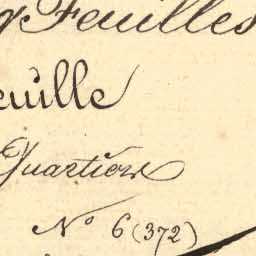 Feuilles
euille
Quartier
N° 6 (372)